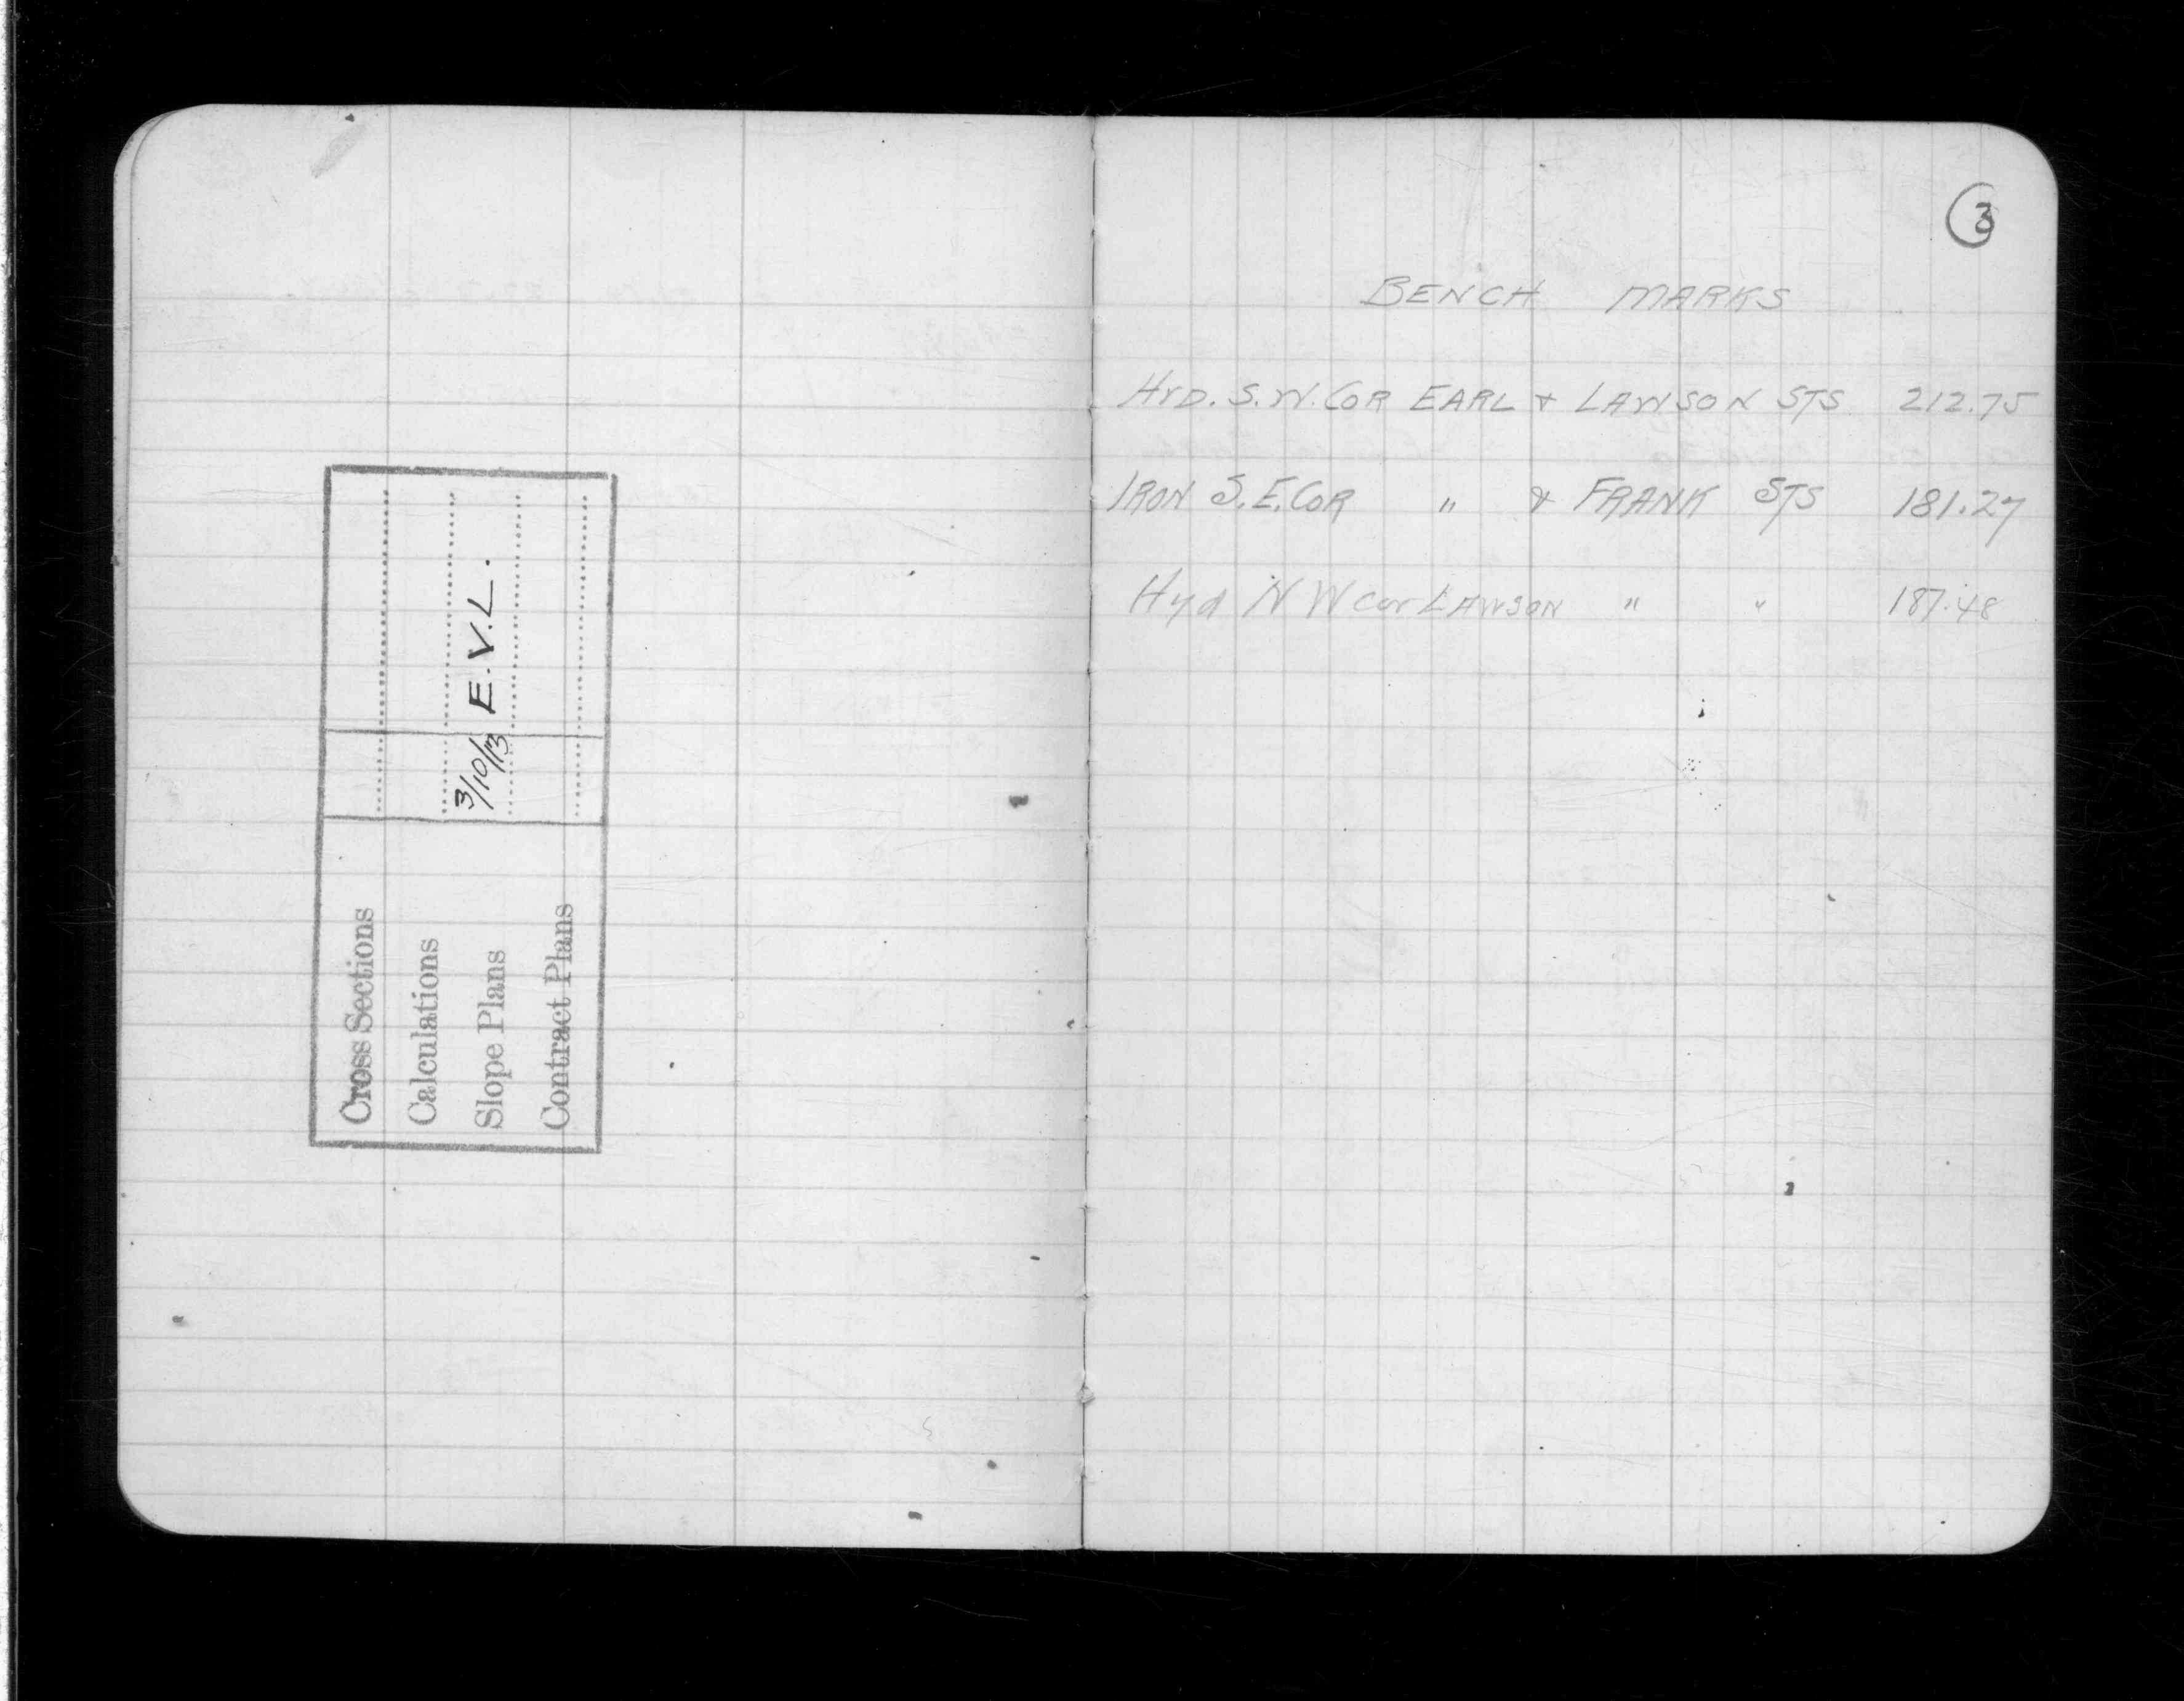 Cross Sections
Calculations
Slope Plans 3/10/13 E.V.L.
Contract Plans
3
BENCH MARKS
HYD. S.W. COR EARL & LAWSON STS 212.75
IRON S.E. COR " & FRANK STS 181.27
Hyd N W cor LAWSON " " 187.48